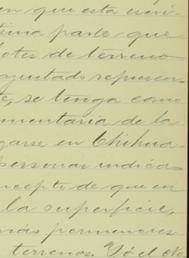 en que esta escri-
tima parte que
lotes de terreno
aquetado represen-
te, se tenga como
mentaria de la
garse en Chihua-
personas indica-
ncepto de que en
la superficie,
más permenores
terrenos. Yó el No